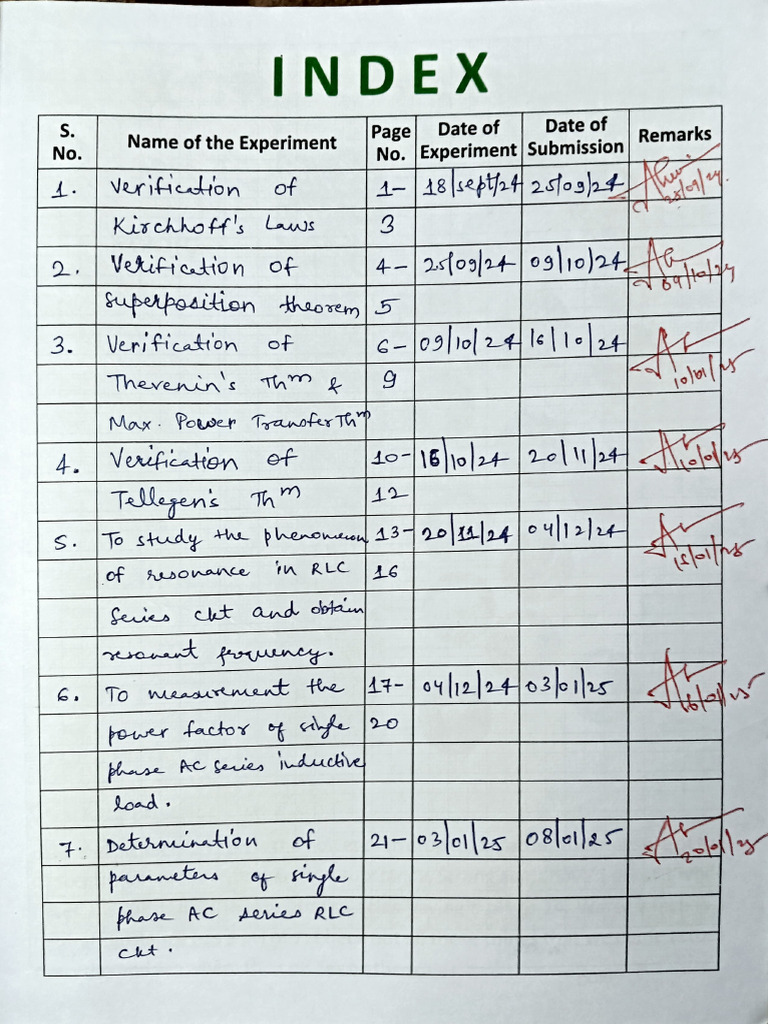 INDEX
S. No. Name of the Experiment Page No. Date of Experiment Date of Submission Remarks
1. Verification of 1- 18/sept/24 25/09/24
25/09/24
Kirchhoff's Laws 3
2. Verification of 4- 25/09/24 09/10/24
09/10/24
superposition theorem 5
3. Verification of 6- 09/10/24 16/10/24
Thevenin's Thm & 9
10/01/25
Max. Power Transfer Thm
4. Verification of 10- 16/10/24 20/11/24
10/01/25
Tellegen's Thm 12
5. To study the phenomenon 13- 20/11/24 04/12/24
15/01/25
of resonance in RLC 16
Series ckt and obtain
resonant frequency.
6. To measurement the 17- 04/12/24 03/01/25
power factor of single 20
phase AC series inductive
load.
7. Determination of 21- 03/01/25 08/01/25
20/01/25
parameters of single
phase AC series RLC
ckt.